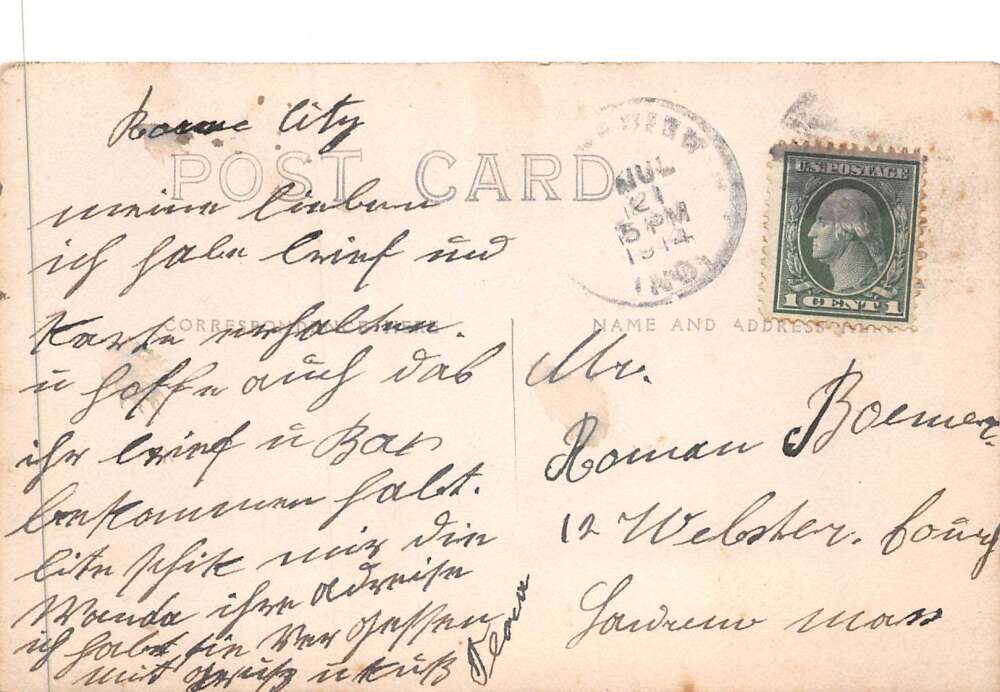 Rome City
POST CARD
meine lieben
ich habe brief und
Karte erhalten.
u hoffe auch das
ihr brief u Kar
bekommen habt.
bite schik mir die
Wanda ihre adreise
ich habe sie Vergessen
mit gruß u Kuß
CORRESPONDENCE HERE
NAME AND ADDRESS
JUL
21
5 PM
1914
IND.
U.S. POSTAGE
1 CENT 1
Mr.
Roman Boemer
12 Webster. Court
Mass